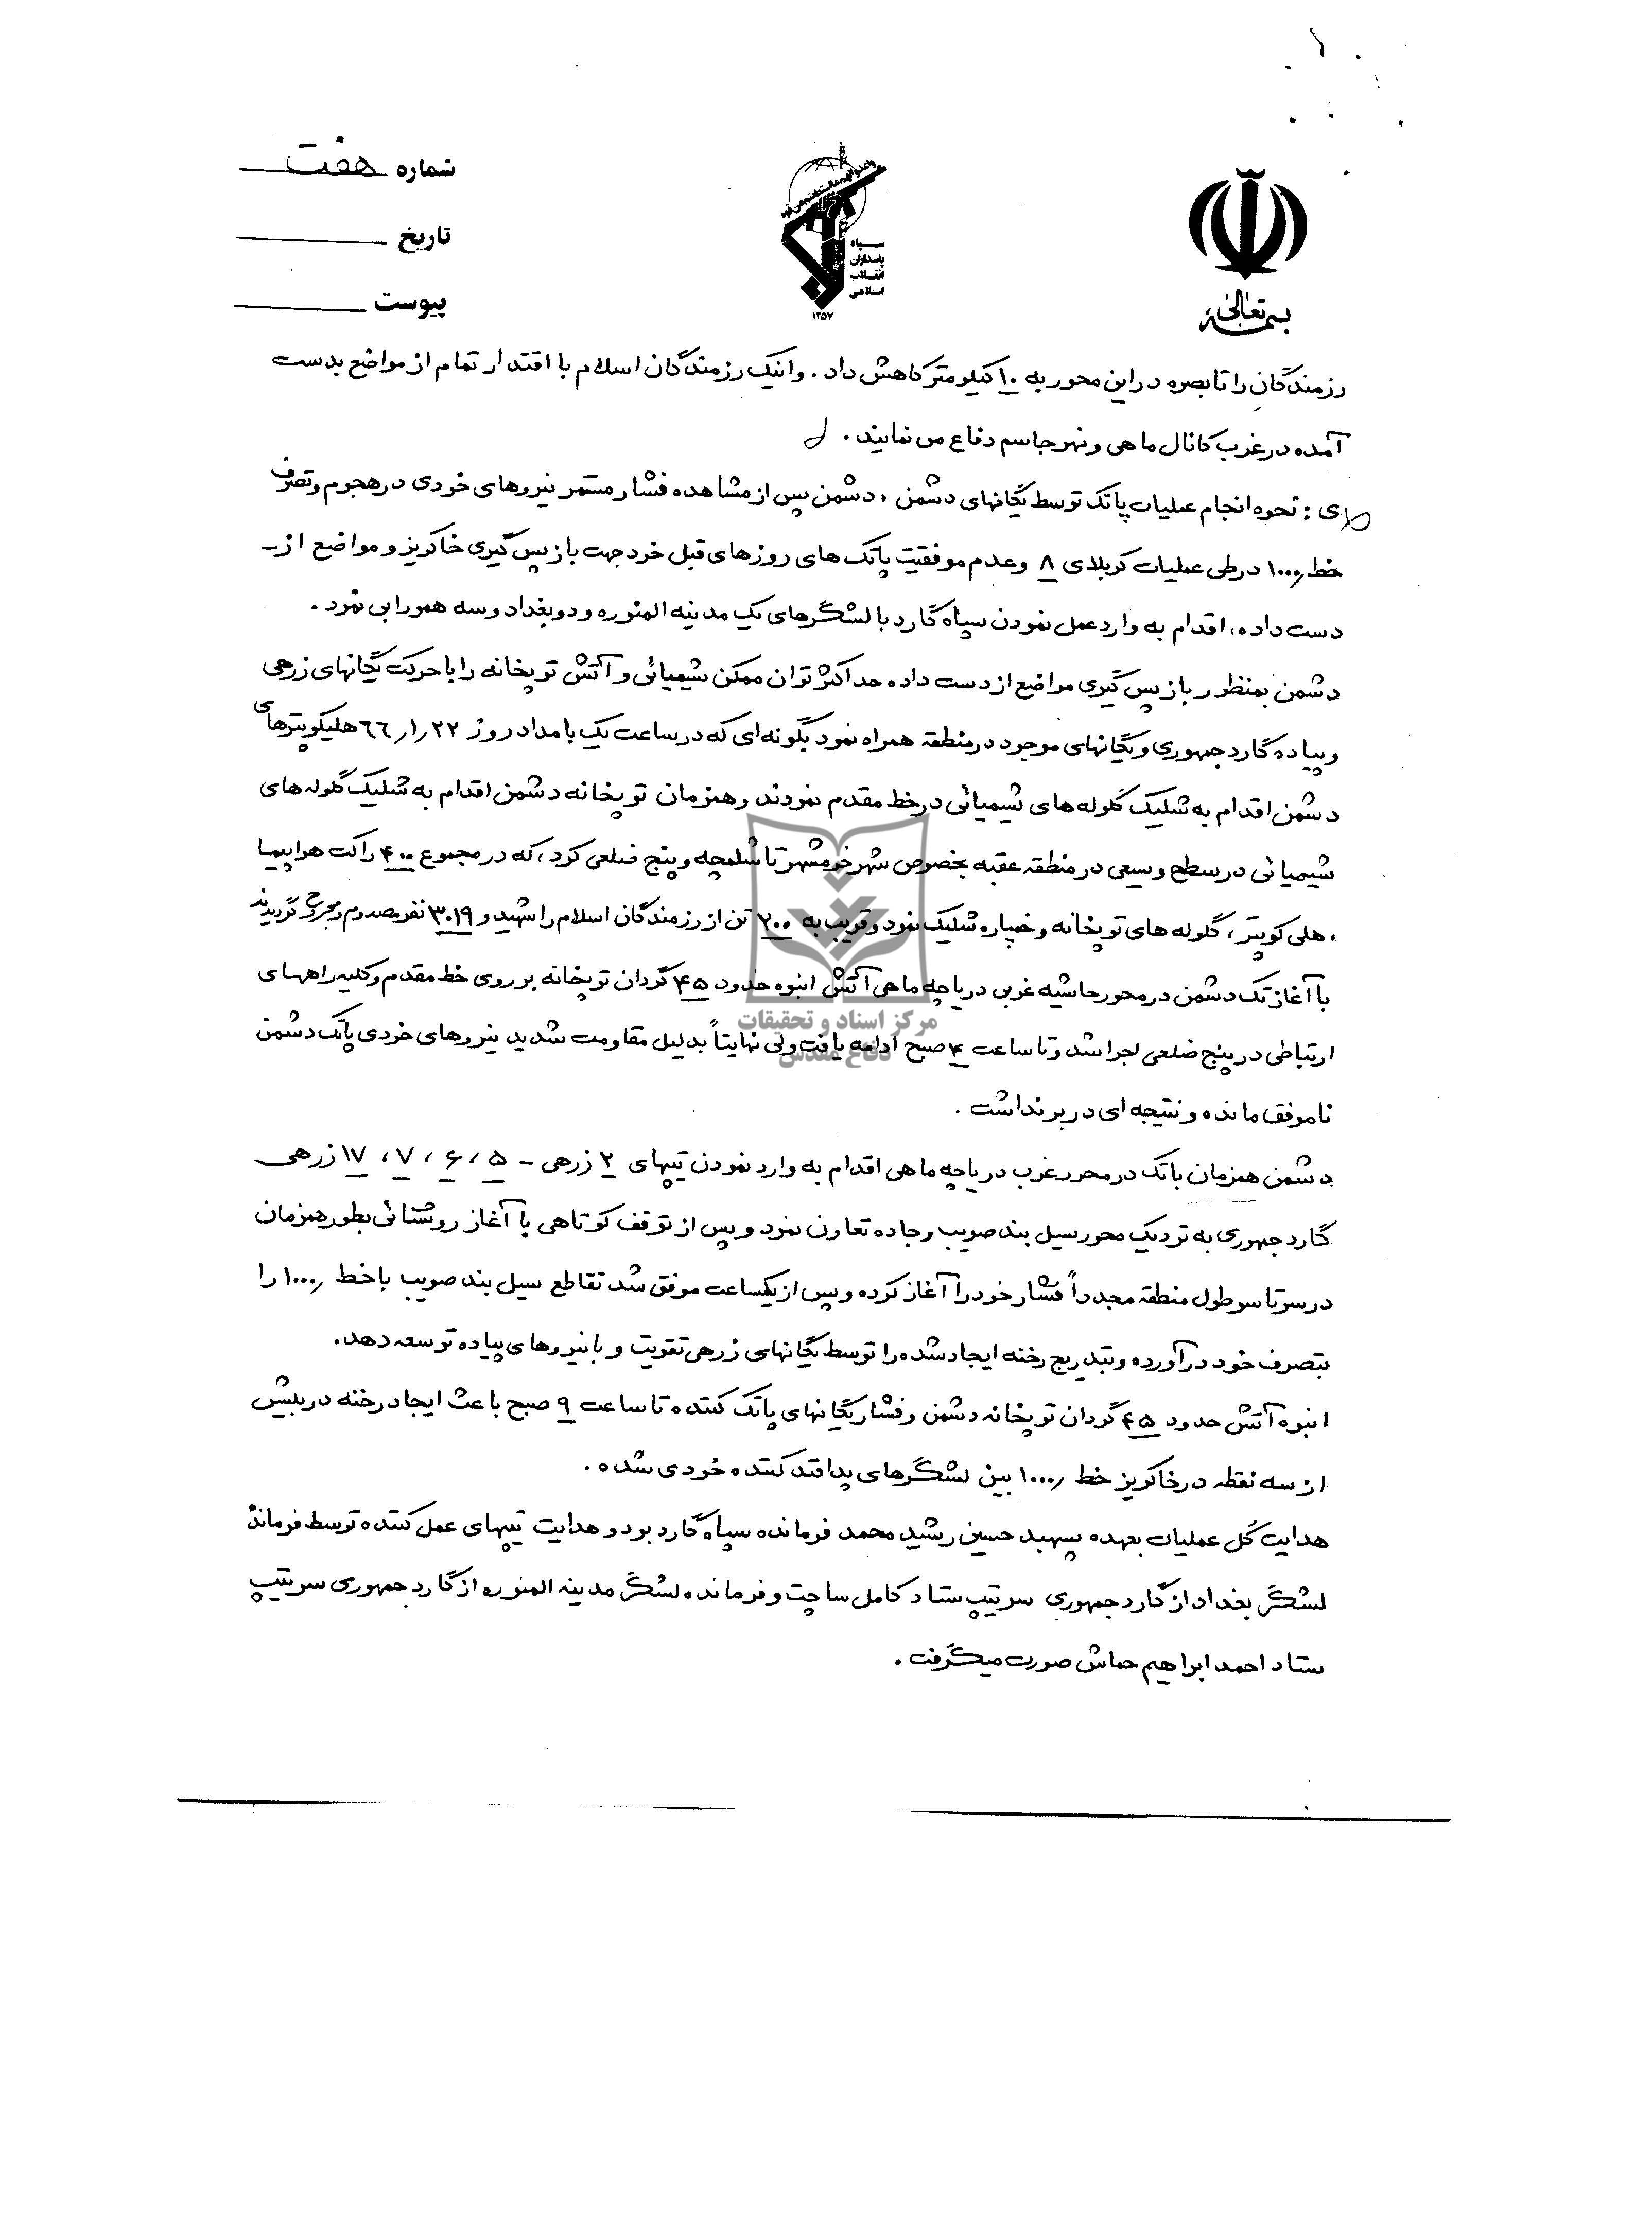 شماره هفت
تاریخ
پیوست
سپاه
پاسداران
انقلاب
اسلامی
۱۳۵۷
بسمه تعالی
رزمندگان را تا بصره در این محور به ۱۰ کیلومتر کاهش داد. و اینک رزمندگان اسلام با اقتدار تمام از مواضع بدست
آمده در غرب کانال ماهی و نهر جاسم دفاع می نمایند.
ی: نحوه انجام عملیات پاتک توسط یگانهای دشمن. دشمن پس از مشاهده فشار مستمر نیروهای خودی در هجوم و تصرف
خط ۱۰۰۰ در طی عملیات کربلای ۸ و عدم موفقیت پاتک های روزهای قبل خود جهت باز پس گیری خاکریز و مواضع از-
دست داده، اقدام به وارد عمل نمودن سپاه گارد با لشگرهای یک مدینه المنوره و دو بغداد و سه همورابی نمود.
دشمن بمنظور باز پس گیری مواضع از دست داده حداکثر توان ممکن شیمیائی و آتش توپخانه را با حرکت یگانهای زرهی
و پیاده گارد جمهوری و یگانهای موجود در منطقه همراه نمود بگونه ای که در ساعت یک بامداد روز ۶۶٫۱٫۲۲ هلیکوپترهای
دشمن اقدام به شلیک گلوله های شیمیائی در خط مقدم نمودند و همزمان توپخانه دشمن اقدام به شلیک گلوله های
شیمیائی در سطح وسیعی در منطقه عقبه بخصوص شهر خرمشهر تا شلمچه و پنج ضلعی کرد، که در مجموع ۴۰۰ راکت هواپیما
، هلی کوپتر، گلوله های توپخانه و خمپاره شلیک نمود و قریب به ۲۰۰ تن از رزمندگان اسلام را شهید و ۳۰۱۹ نفر مصدوم و مجروح گردیدند
با آغاز تک دشمن در محور حاشیه غربی دریاچه ماهی آتش انبوه حدود ۴۵ گردان توپخانه بر روی خط مقدم و کلیه راههای
ارتباطی در پنج ضلعی اجرا شد و تا ساعت ۴ صبح ادامه یافت ولی نهایتاً بدلیل مقاومت شدید نیروهای خودی پاتک دشمن
ناموفق مانده و نتیجه ای در بر نداشت.
دشمن همزمان با تک در محور غرب دریاچه ماهی اقدام به وارد نمودن تیپهای ۲ زرهی - ۵، ۶، ۷، ۱۷ زرهی
گارد جمهوری به نزدیک محور سیل بند صویب و جاده تعاون نمود و پس از توقف کوتاهی با آغاز روشنائی بطور همزمان
در سرتاسر طول منطقه مجدداً فشار خود را آغاز کرده و پس از یکساعت موفق شد تقاطع سیل بند صویب با خط ۱۰۰۰ را
بتصرف خود درآورده و بتدریج رخنه ایجاد شده را توسط یگانهای زرهی تقویت و با نیروهای پیاده توسعه دهد.
انبوه آتش حدود ۴۵ گردان توپخانه دشمن و فشار یگانهای پاتک کننده تا ساعت ۹ صبح باعث ایجاد رخنه در بیش
از سه نقطه در خاکریز خط ۱۰۰۰ بین لشگرهای پدافند کننده خودی شده.
هدایت کل عملیات بعهده سپهبد حسین رشید محمد فرمانده سپاه گارد بود و هدایت تیپهای عمل کننده توسط فرمانده
لشگر بغداد از گارد جمهوری سرتیپ ستاد کامل ساچت و فرمانده لشگر مدینه المنوره از گارد جمهوری سرتیپ
ستاد احمد ابراهیم حماش صورت میگرفت.
مرکز اسناد و تحقیقات
دفاع مقدس